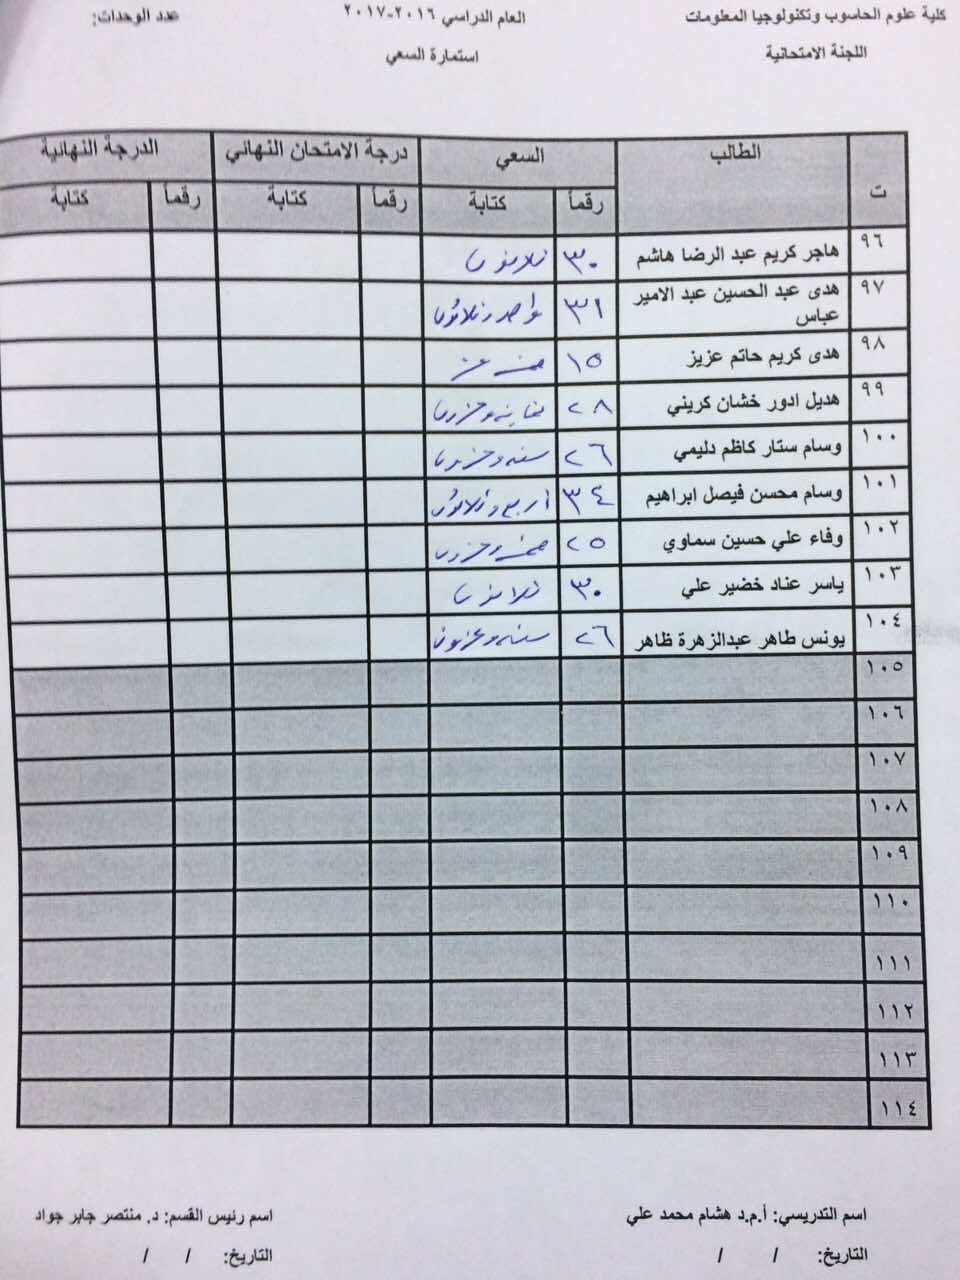 كلية علوم الحاسوب وتكنولوجيا المعلومات العام الدراسي ٢٠١٦-٢٠١٧ عدد الوحدات:
اللجنة الامتحانية استمارة السعي
ت الطالب السعي درجة الامتحان النهائي الدرجة النهائية
رقماً كتابة رقماً كتابة رقماً كتابة
٩٦ هاجر كريم عبد الرضا هاشم ٣٠ ثلاثون
٩٧ هدى عبد الحسين عبد الامير ٣١ واحد وثلاثون
عباس
٩٨ هدى كريم حاتم عزيز ١٥ خمسة عشر
٩٩ هديل ادور خشان كريني ٢٨ ثمانية وعشرون
١٠٠ وسام ستار كاظم دليمي ٢٦ ستة وعشرون
١٠١ وسام محسن فيصل ابراهيم ٣٤ اربع وثلاثون
١٠٢ وفاء علي حسين سماوي ٢٥ خمسة وعشرون
١٠٣ ياسر عناد خضير علي ٣٠ ثلاثون
١٠٤ يونس طاهر عبدالزهرة ظاهر ٢٦ ستة وعشرون
١٠٥
١٠٦
١٠٧
١٠٨
١٠٩
١١٠
١١١
١١٢
١١٣
١١٤
اسم التدريسي: أ.م.د هشام محمد علي اسم رئيس القسم: د. منتصر جابر جواد
التاريخ: / / التاريخ: / /